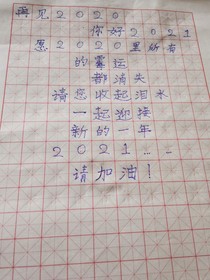 再见2020
你好2021
愿2020里所有
的霉运
都消失
请您收起泪水
一起迎接
新的一年
2021...-
请加油！